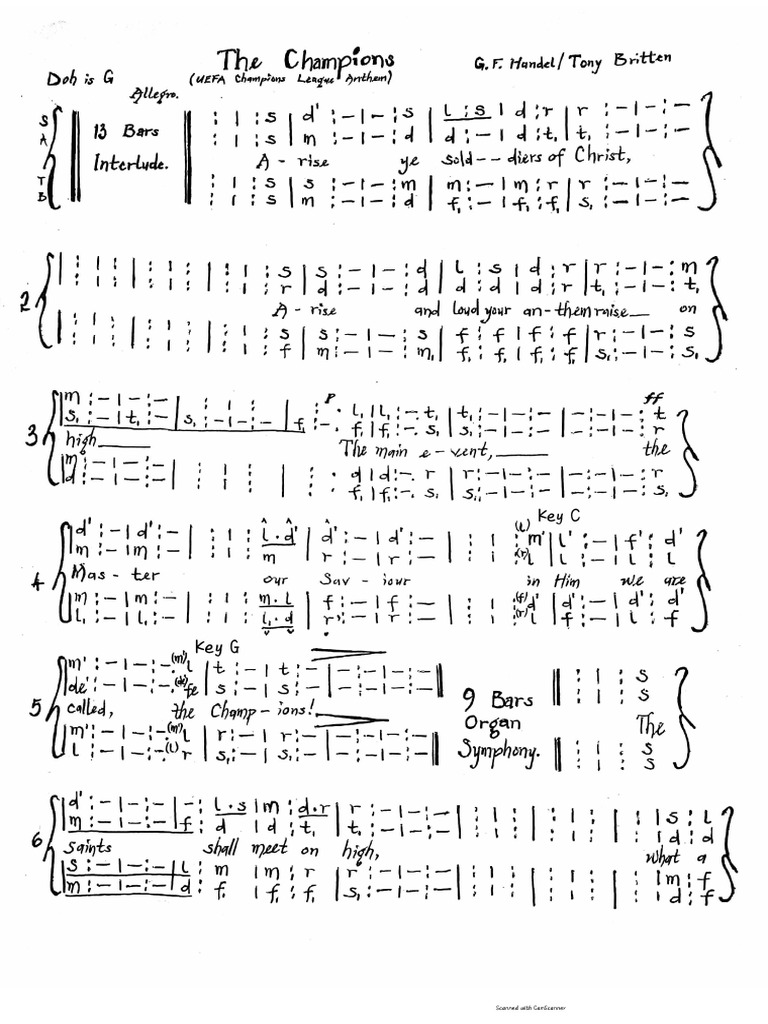 The Champions
G. F. Handel/Tony Britten
Doh is G
(UEFA Champions League Anthem)
Allegro.
S : | : | s | d' : - | - : s | l : s | d : r | r : - | - : -
A 13 Bars : | : | s | m : - | - : d | d : - | d : t, | t, : - | - : -
Interlude. A - rise ye sold - - diers of Christ,
T : | : | s | s : - | - : m | m : - | m : r | r : - | - : -
B : | : | s | m : - | - : d | f, : - | f, : f, | s, : - | - : -
2
: | : | : | : | : | : s | s : - | - : d | l : s | d : r | r : - | - : m
: | : | : | : | : | : r | d : - | - : d | d : d | d : d | t, : - | - : t,
A - rise and loud your an - them raise__ on
: | : | : | : | : | : s | s : - | - : s | f : f | f : f | r : - | - : s
: | : | : | : | : | : f | m : - | - : m, | f, : f, | f, : f, | s, : - | - : s,
3
p
ff
m : - | - : - | : | : | : - . l, | l, : - . t, | t, : - | - : - | - : - | - : t
s, : - | t, : - | s, : - | - : - | f, : - . f, | f, : - . s, | s, : - | - : - | - : - | - : r
high____ The main e - vent,____ the
m : - | - : - | : | : | : . d | d : - . r | r : - | - : - | - : - | - : r
d : - | - : - | : | : | : . f, | f, : - . s, | s, : - | - : - | - : - | - : s,
4
Key C
d' : - | d' : - | : | : l . d' | d' : - | d' : - | : | : (l) m' | l' : - | f' : d'
m : - | m : - | : | : m | r : - | r : - | : | : (r) l | l : - | l : l
Mas - ter our Sav - iour in Him we are
m : - | m : - | : | : m . l | f : - | f : - | : | : (f) d' | d' : - | d' : d'
l, : - | l, : - | : | : l, . d | r' : - | r : - | : | : (r) l | f : - | l : f
5
Key G
m' : - | - : - (m') l | t : - | t : - | - : - | - : -
de' : - | - : - (de') fe | s : - | s : - | - : - | - : -
called, the Champ - ions!
m' : - | - : - (m') l | r : - | r : - | - : - | - : -
l : - | - : - (l) r | s, : - | s, : - | - : - | - : -
9 Bars
Organ
Symphony.
: | : s
: | : s
The
: | : s
: | : s
6
d' : - | - : - | - : l . s | m : d . r | r : - | - : - | : | : | : | : | : | s : l
m : - | - : - | f : d | d : t, | t, : - | - : - | : | : | : | : | : | d : d
saints shall meet on high, what a
s : - | - : - | l : m | m : r | r : - | - : - | : | : | : | : | : | m : f
m : - | - : - | d : f, | f, : f, | s, : - | - : - | : | : | : | : | : | d : f
Scanned with CamScanner